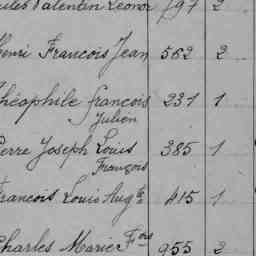 Jules Valentin Léonor 797 2
Henri François Jean 562 2
Théophile François 231 1
Julien
Pierre Joseph Louis 385 1
François
François Louis Aug.te 415 1
Charles Marie F.ois 955 2